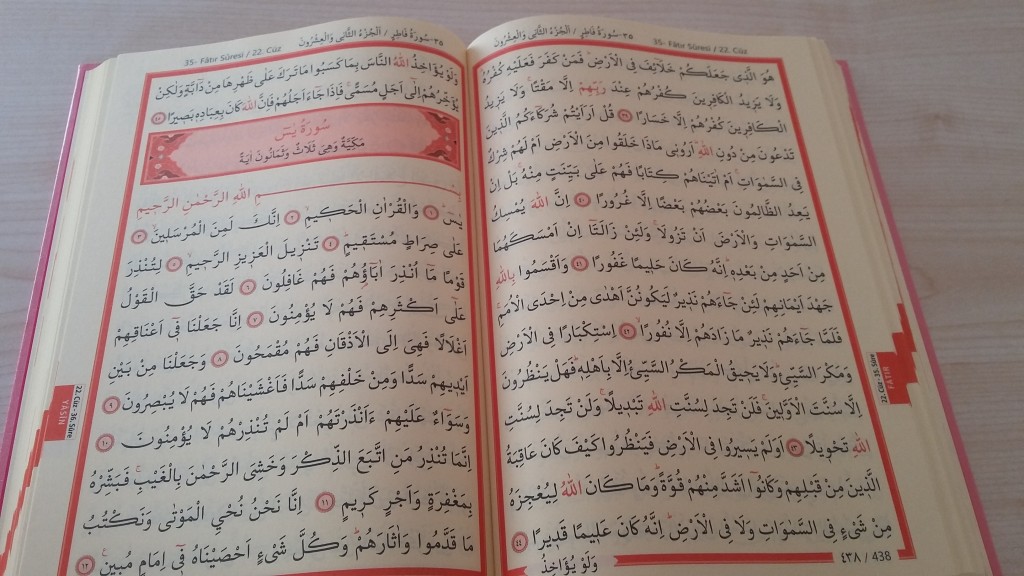 ٣٥-سُورَةُ فَاطِرٍ / اَلْجُزْءُ الثَّانِى وَالْعِشْرُونَ
35- Fâtır Sûresi / 22. Cüz
هُوَ الَّذ۪ى جَعَلَكُمْ خَلَٓائِفَ فِى الْاَرْضِۜ فَمَنْ كَفَرَ فَعَلَيْهِ كُفْرُهُۜ
وَلَا يَز۪يدُ الْكَافِر۪ينَ كُفْرُهُمْ عِنْدَ رَبِّهِمْ اِلَّا مَقْتًاۚ وَلَا يَز۪يدُ
الْكَافِر۪ينَ كُفْرُهُمْ اِلَّا خَسَارًا ﴿٣٩﴾ قُلْ اَرَاَيْتُمْ شُرَكَٓاءَكُمُ الَّذ۪ينَ
تَدْعُونَ مِنْ دُونِ اللّٰهِۜ اَرُون۪ى مَاذَا خَلَقُوا مِنَ الْاَرْضِ اَمْ لَهُمْ شِرْكٌ
فِى السَّمٰوَاتِۚ اَمْ اٰتَيْنَاهُمْ كِتَابًا فَهُمْ عَلٰى بَيِّنَتٍ مِنْهُۚ بَلْ اِنْ
يَعِدُ الظَّالِمُونَ بَعْضُهُمْ بَعْضًا اِلَّا غُرُورًا ﴿٤٠﴾ اِنَّ اللّٰهَ يُمْسِكُ
السَّمٰوَاتِ وَالْاَرْضَ اَنْ تَزُولَاۚ وَلَئِنْ زَالَتَٓا اِنْ اَمْسَكَهُمَا
مِنْ اَحَدٍ مِنْ بَعْدِه۪ۜ اِنَّهُ كَانَ حَل۪يمًا غَفُورًا ﴿٤١﴾ وَاَقْسَمُوا بِاللّٰهِ
جَهْدَ اَيْمَانِهِمْ لَئِنْ جَٓاءَهُمْ نَذ۪يرٌ لَيَكُونُنَّ اَهْدٰى مِنْ اِحْدَى الْاُمَمِۚ
فَلَمَّا جَٓاءَهُمْ نَذ۪يرٌ مَا زَادَهُمْ اِلَّا نُفُورًاۙ ﴿٤٢﴾ اِسْتِكْبَارًا فِى الْاَرْضِ
وَمَكْرَ السَّيِّئِۜ وَلَا يَح۪يقُ الْمَكْرُ السَّيِّئُ اِلَّا بِاَهْلِه۪ۜ فَهَلْ يَنْظُرُونَ
اِلَّا سُنَّتَ الْاَوَّل۪ينَۚ فَلَنْ تَجِدَ لِسُنَّتِ اللّٰهِ تَبْد۪يلًاۚ وَلَنْ تَجِدَ لِسُنَّتِ
اللّٰهِ تَحْو۪يلًا ﴿٤٣﴾ اَوَلَمْ يَس۪يرُوا فِى الْاَرْضِ فَيَنْظُرُوا كَيْفَ كَانَ عَاقِبَةُ
الَّذ۪ينَ مِنْ قَبْلِهِمْ وَكَانُٓوا اَشَدَّ مِنْهُمْ قُوَّةًۜ وَمَا كَانَ اللّٰهُ لِيُعْجِزَهُ
مِنْ شَىْءٍ فِى السَّمٰوَاتِ وَلَا فِى الْاَرْضِۜ اِنَّهُ كَانَ عَل۪يمًا قَد۪يرًا ﴿٤٤﴾
وَلَوْ يُؤَاخِذُ
٤٣٨ / 438
22.Cüz - 35.Sûre
FATIR
٣٥-سُورَةُ فَاطِرٍ / اَلْجُزْءُ الثَّانِى وَالْعِشْرُونَ
35- Fâtır Sûresi / 22. Cüz
وَلَوْ يُؤَاخِذُ اللّٰهُ النَّاسَ بِمَا كَسَبُوا مَا تَرَكَ عَلٰى ظَهْرِهَا مِنْ دَٓابَّةٍ وَلٰكِنْ
يُؤَخِّرُهُمْ اِلٰٓى اَجَلٍ مُسَمًّىۚ فَاِذَا جَٓاءَ اَجَلُهُمْ فَاِنَّ اللّٰهَ كَانَ بِعِبَادِه۪ بَص۪يرًا ﴿٤٥﴾
سُورَةُ يٰسٓ
مَكِّيَّةٌ وَهِىَ ثَلَاثٌ وَثَمَانُونَ اٰيَةً
بِسْمِ اللّٰهِ الرَّحْمٰنِ الرَّح۪يمِ
يٰسٓۜ ﴿١﴾ وَالْقُرْاٰنِ الْحَك۪يمِۙ ﴿٢﴾ اِنَّكَ لَمِنَ الْمُرْسَل۪ينَۙ ﴿٣﴾
عَلٰى صِرَاطٍ مُسْتَق۪يمٍۜ ﴿٤﴾ تَنْز۪يلَ الْعَز۪يزِ الرَّح۪يمِۙ ﴿٥﴾ لِتُنْذِرَ
قَوْمًا مَٓا اُنْذِرَ اٰبَٓاؤُ۬هُمْ فَهُمْ غَافِلُونَ ﴿٦﴾ لَقَدْ حَقَّ الْقَوْلُ
عَلٰٓى اَكْثَرِهِمْ فَهُمْ لَا يُؤْمِنُونَ ﴿٧﴾ اِنَّا جَعَلْنَا ف۪ٓى اَعْنَاقِهِمْ
اَغْلَالًا فَهِىَ اِلَى الْاَذْقَانِ فَهُمْ مُقْمَحُونَ ﴿٨﴾ وَجَعَلْنَا مِنْ بَيْنِ
اَيْد۪يهِمْ سَدًّا وَمِنْ خَلْفِهِمْ سَدًّا فَاَغْشَيْنَاهُمْ فَهُمْ لَا يُبْصِرُونَ ﴿٩﴾
وَسَوَٓاءٌ عَلَيْهِمْ ءَاَنْذَرْتَهُمْ اَمْ لَمْ تُنْذِرْهُمْ لَا يُؤْمِنُونَ ﴿١٠﴾
اِنَّمَا تُنْذِرُ مَنِ اتَّبَعَ الذِّكْرَ وَخَشِىَ الرَّحْمٰنَ بِالْغَيْبِۚ فَبَشِّرْهُ
بِمَغْفِرَةٍ وَاَجْرٍ كَر۪يمٍ ﴿١١﴾ اِنَّا نَحْنُ نُحْيِ الْمَوْتٰى وَنَكْتُبُ
مَا قَدَّمُوا وَاٰثَارَهُمْۜ وَكُلَّ شَىْءٍ اَحْصَيْنَاهُ ف۪ٓى اِمَامٍ مُب۪ينٍ۟ ﴿١٢﴾
22.Cüz - 36.Sûre
YASİN